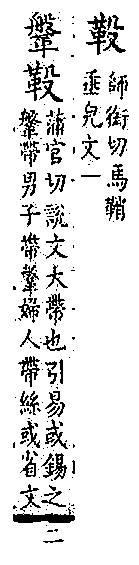 師銜切馬鞘
垂皃文一
鞶
蒲官切說文大帶也引易或錫之
鞶帶男子帶鞶婦人帶絲或省文
二